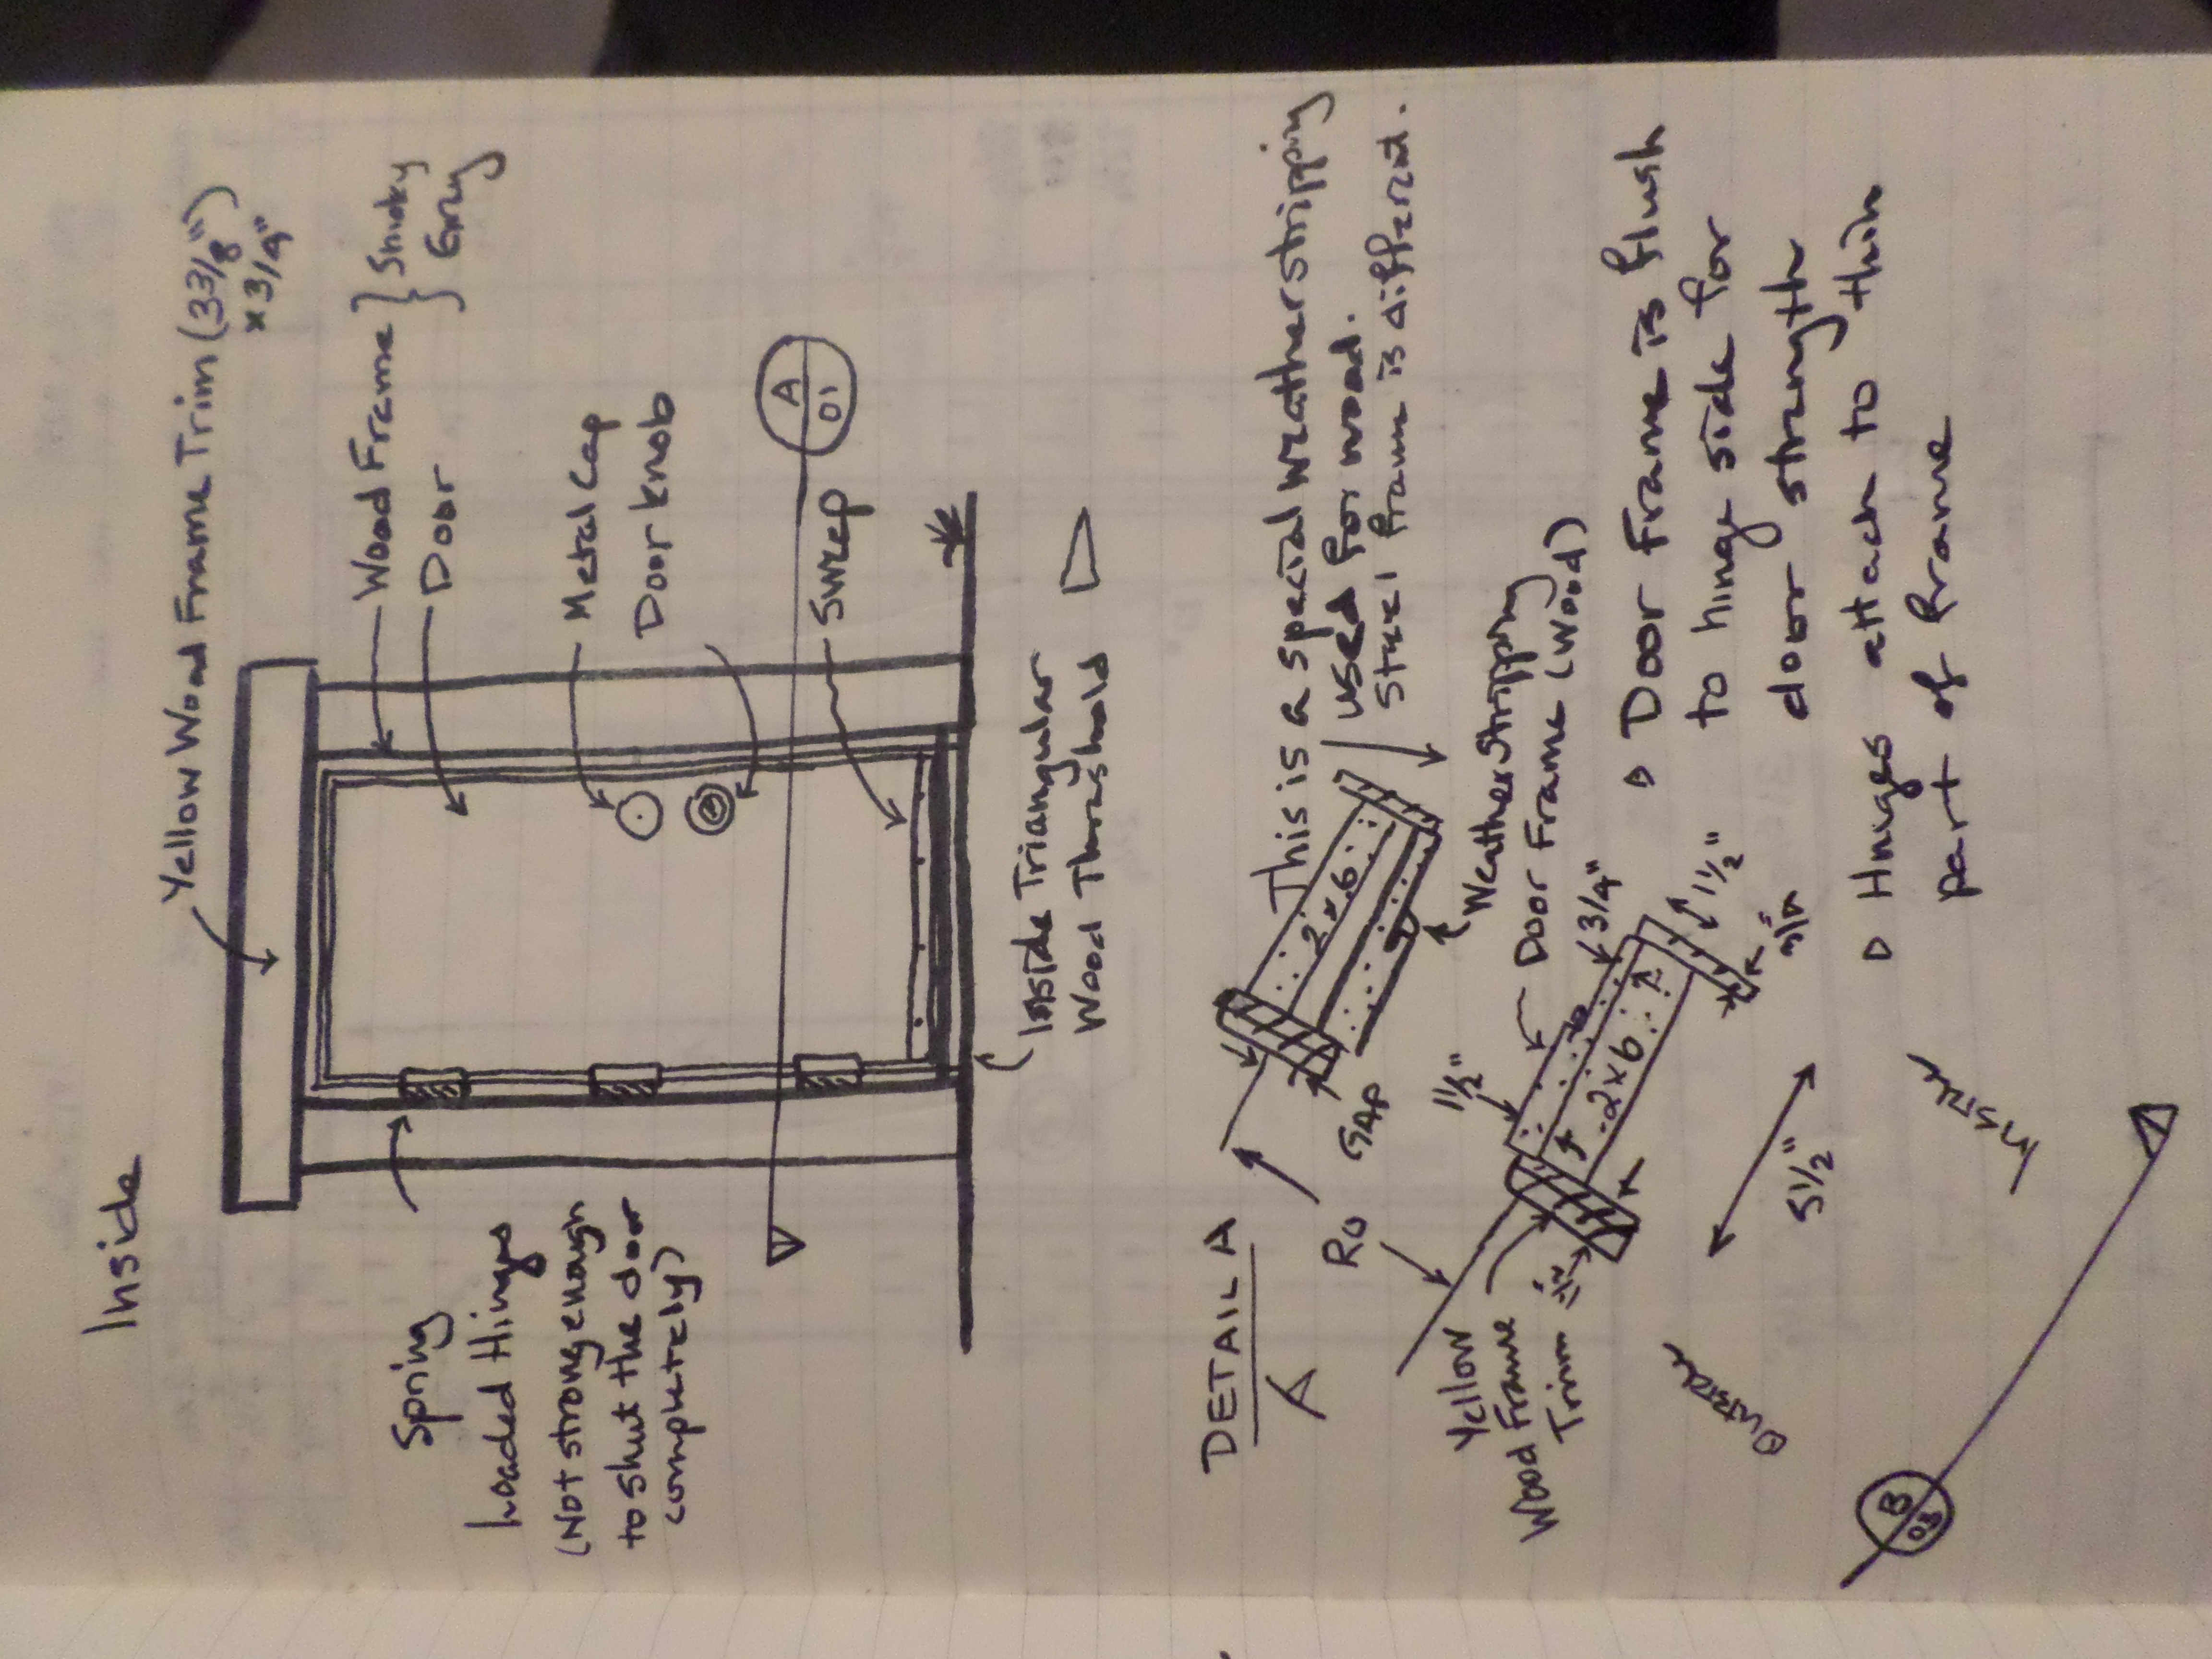 Inside
Yellow Wood Frame Trim (3 3/8")
x 3/4"
Wood Frame } Smoky
Door } Grey
Metal Cap
Door knob
A
01
Sweep
Spring
Loaded Hinges
(Not strong enough
to shut the door
completely)
Inside Triangular
Wood Threshold
DETAIL A
This is a special weatherstripping
used for wood.
Steel frame is different.
2x6
Weather Stripping
Door Frame (Wood)
RO
GAP
1 1/2"
3/4"
2x6
1 1/2"
Yellow
Wood Frame
Trim
5 1/2"
Outside
Inside
▷ Door Frame is flush
to hinge side for
door strength
▷ Hinges attach to thin
part of frame
B
03